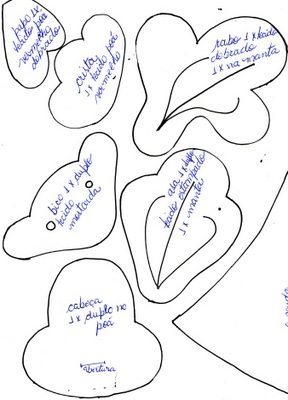 papo 1x
tecido poá
vermelho
dobrado
crista
1x tecido poá
vermelho
rabo 1x tecido
dobrado
1x na manta
bico 1x duplo
tecido
mostarda
ala 1x duplo
tecido estampado
1x manta
cabeça
1x duplo no
poá
abertura